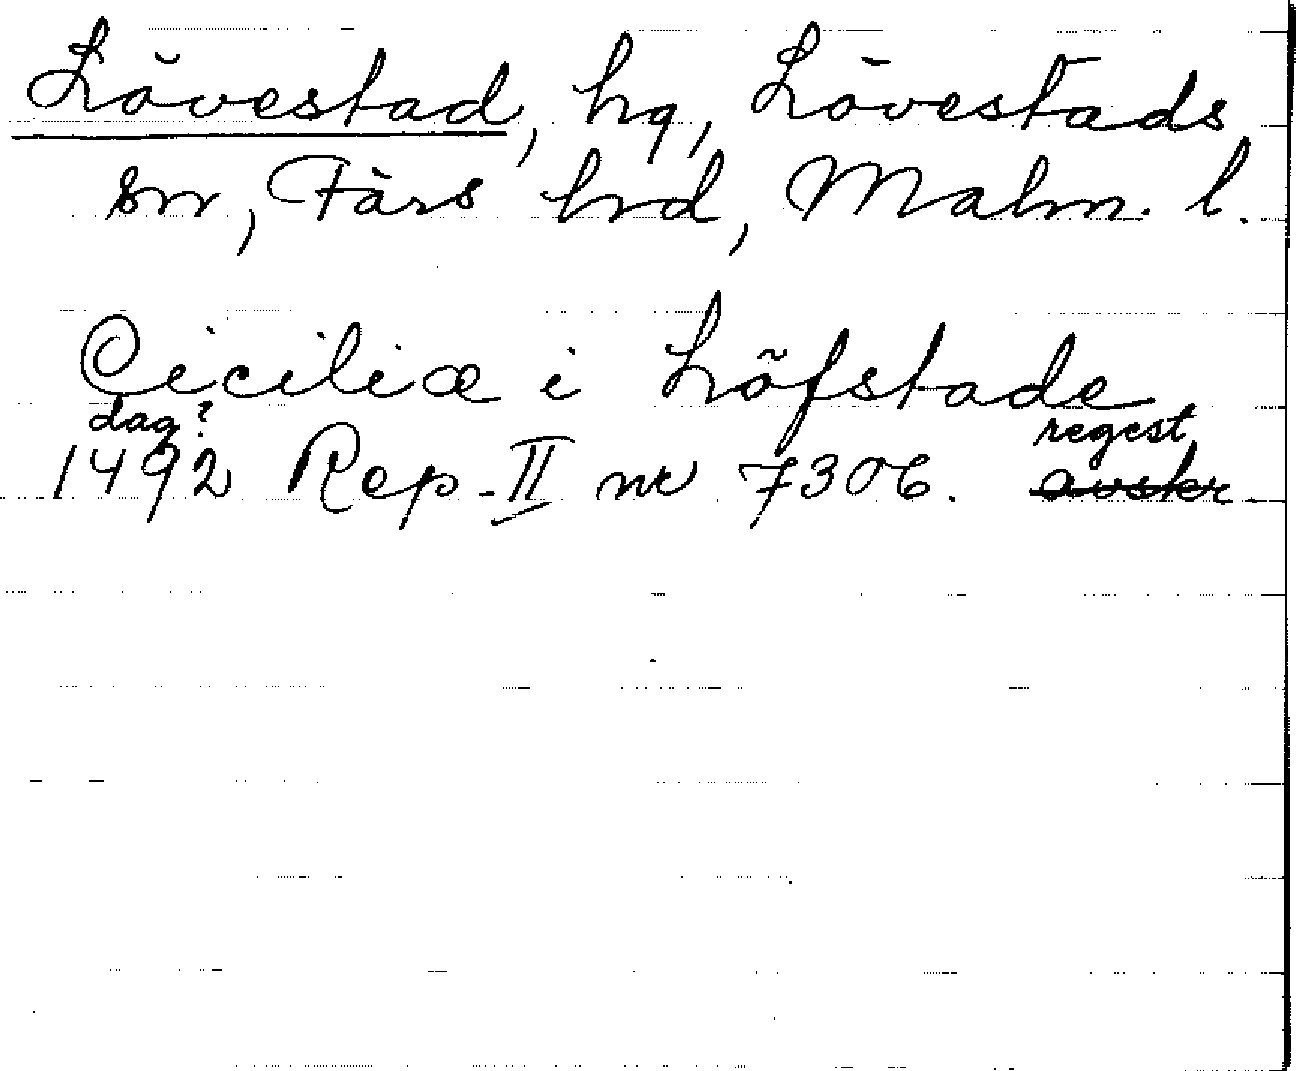 Lövestad, hg, Lövestads
sn, Färs hrd, Malm. l.
Ciciliæ i Löfstade
dag? regest
1492 Rep. II nr 7306. avskr